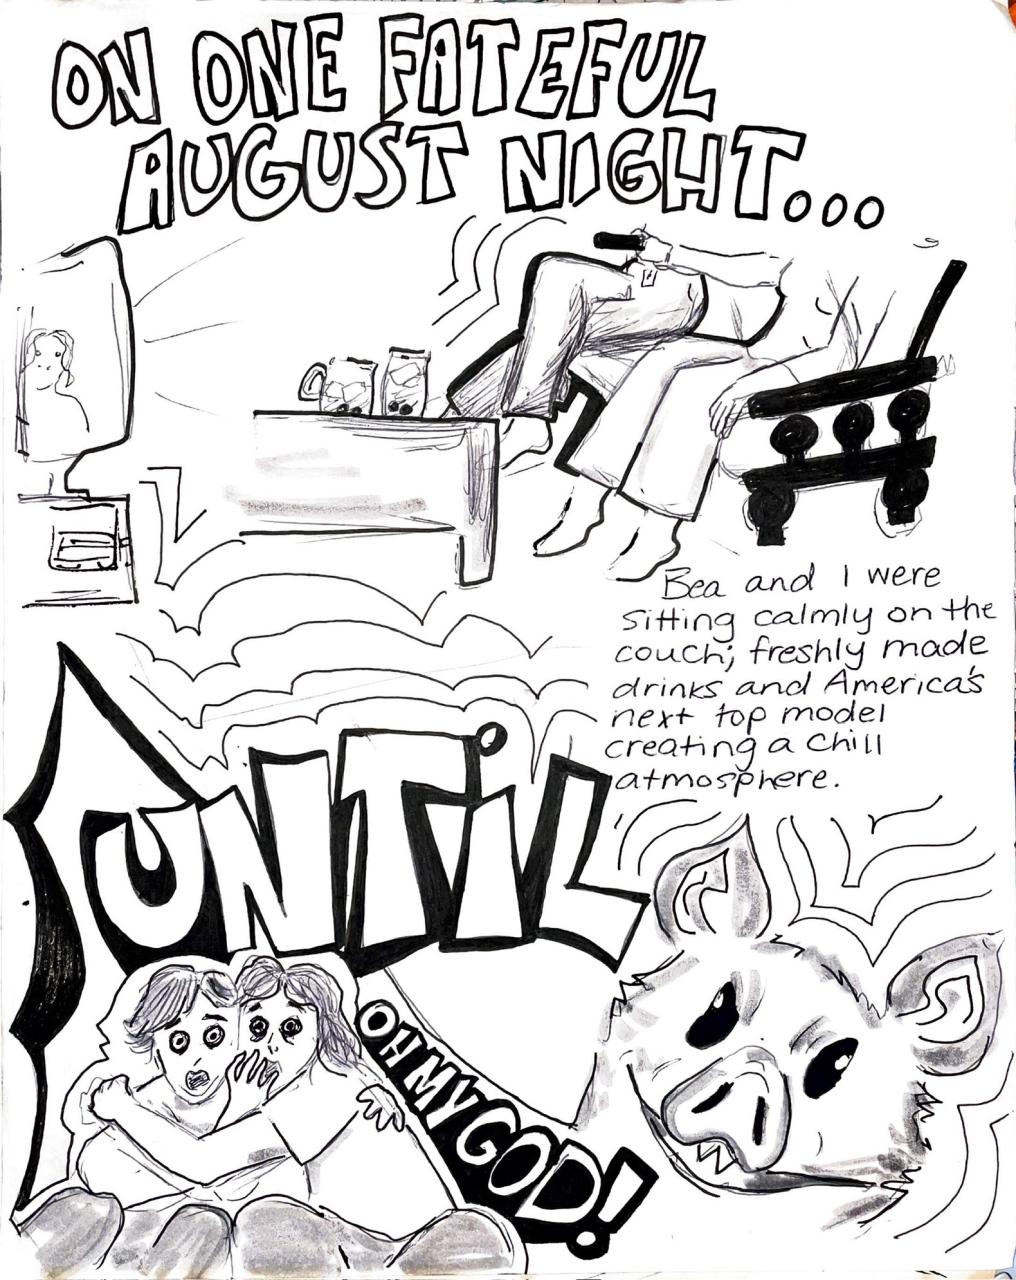 ON ONE FATEFUL
AUGUST NIGHT...
Bea and I were
sitting calmly on the
couch; freshly made
drinks and America's
next top model
creating a chill
atmosphere.
UNTiL
OH MY GOD!